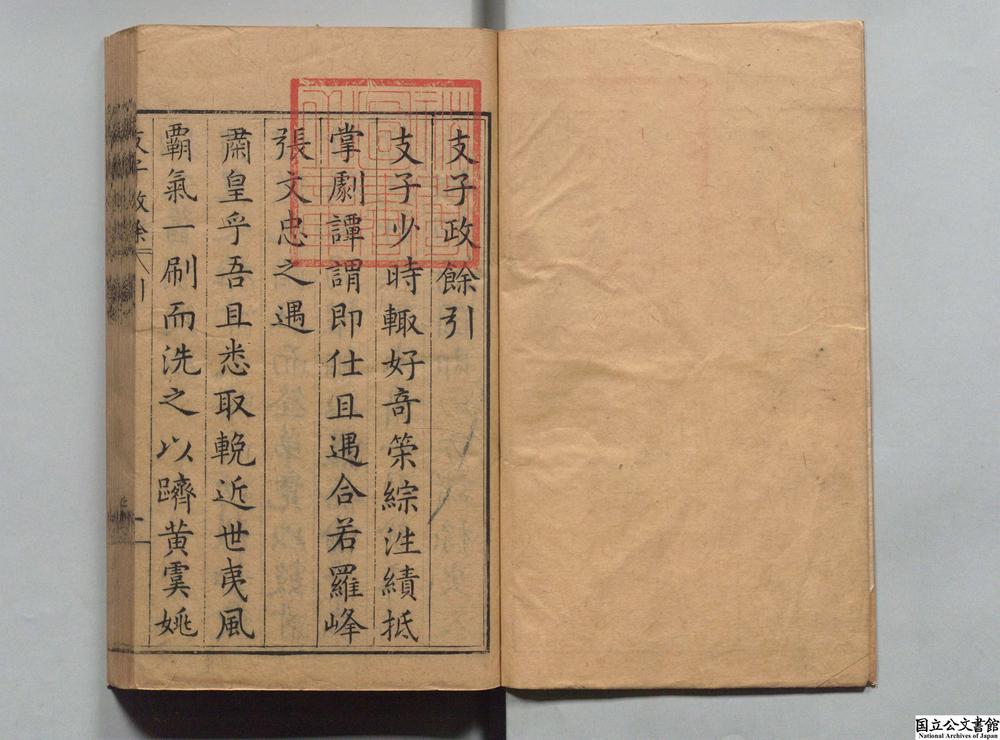 支子政餘引
支子少時輙好奇筞綜泩績抵
掌劇譚謂即仕且遇合若羅峰
張文忠之遇
肅皇乎吾且悉取輓近世夷風
覇氣一刷而洗之以躋黄虞姚
支子政餘 引
一
国立公文書館
National Archives of Japan